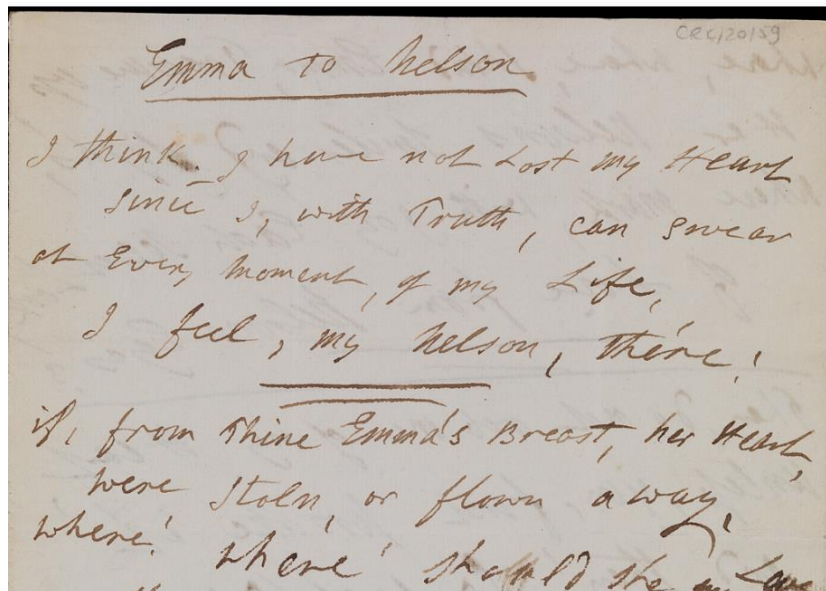 CRK/20/59
Emma to Nelson
I think. I have not Lost my Heart
since I, with Truth, can swear
at Every moment, of my Life,
I feel, my Nelson, there!
if, from Thine Emma's Breast, her Heart,
were Stoln, or flown away,
where! where! should she, my Love